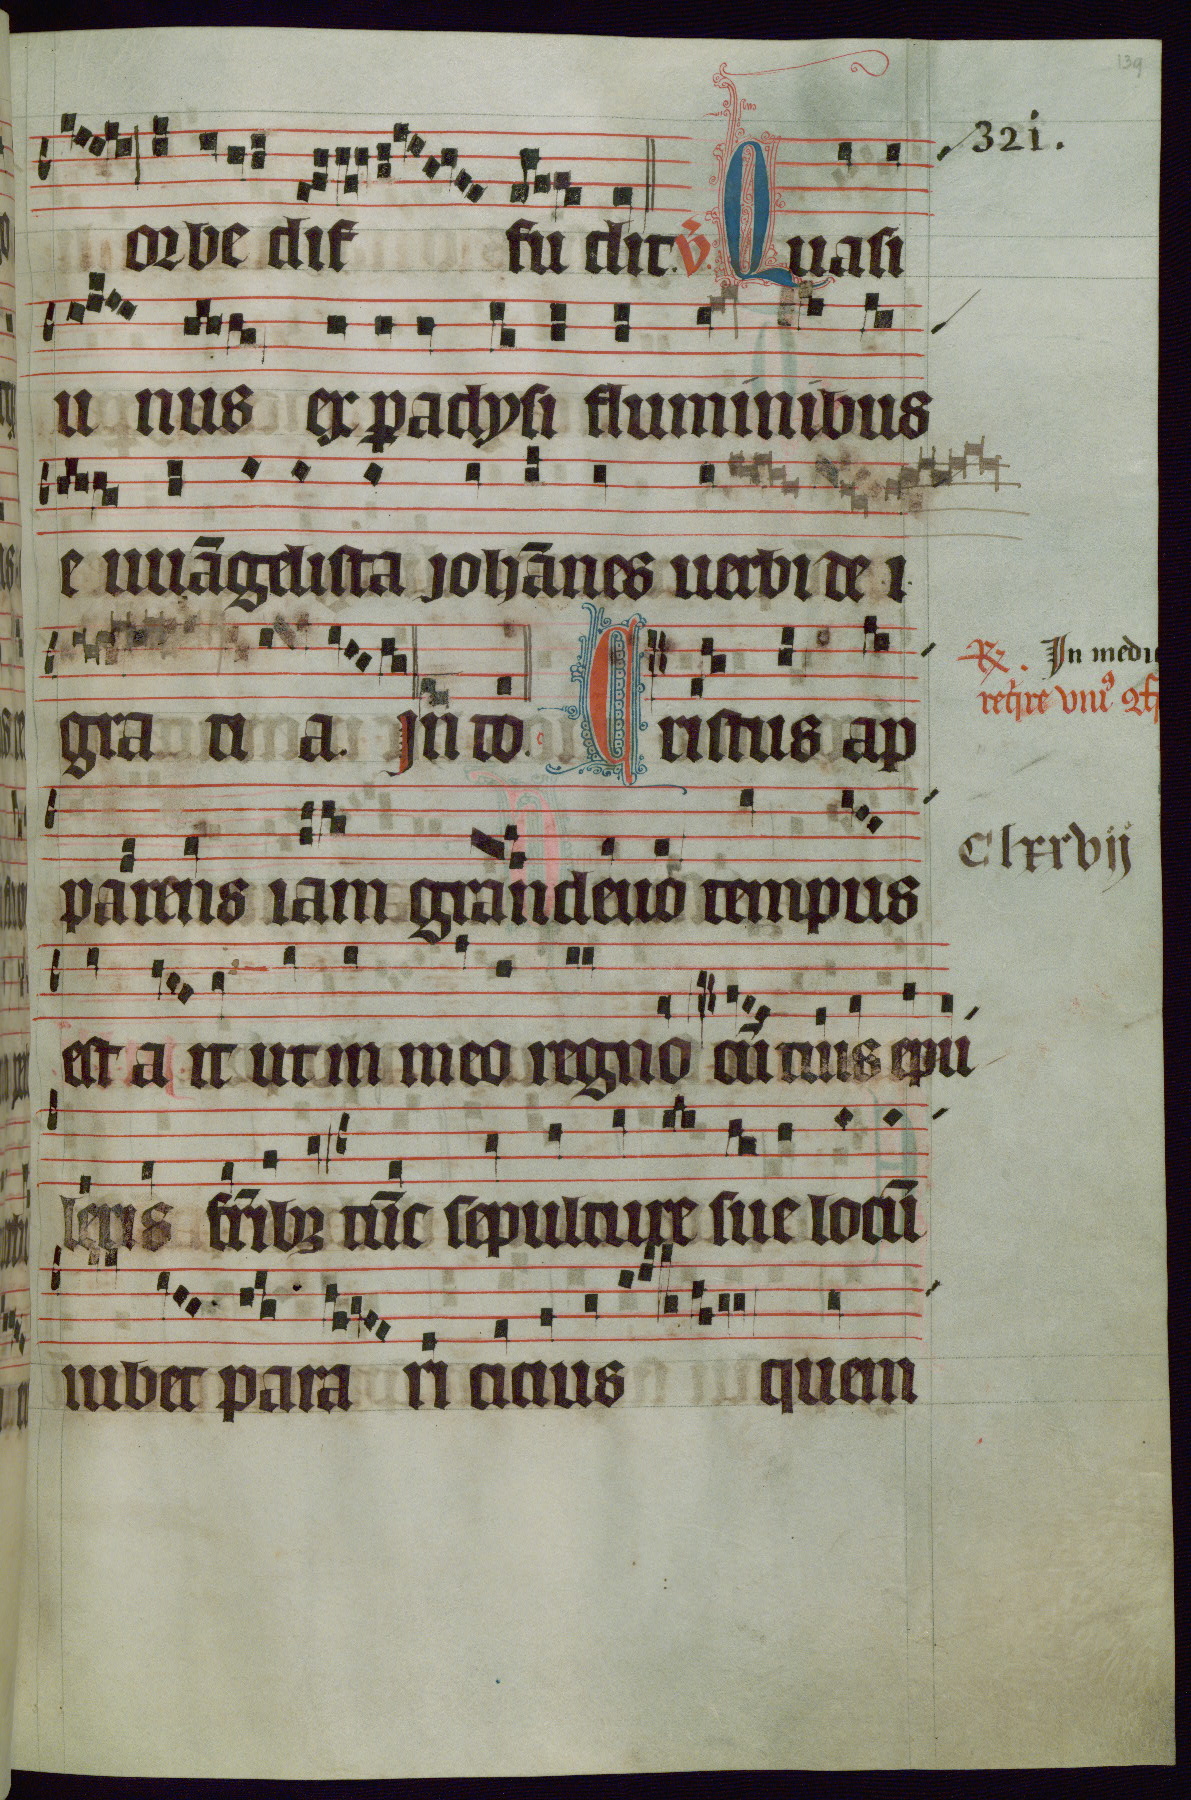 139
321.
orbe dif fu dit. V̄. Quasi
u nus ex padysi fluminibus
e uuāgelista johānes uerbi de i
gra ti a. In to. Cristus ap
R̄. In medi
req̄re vniꝰ
parens iam grandeuo tempus
Clxxvij
est a it ut in meo regno cū tuis epu
leris fr̄ibꝫ tūc sepulture sue locū
iubet para ri citius quem